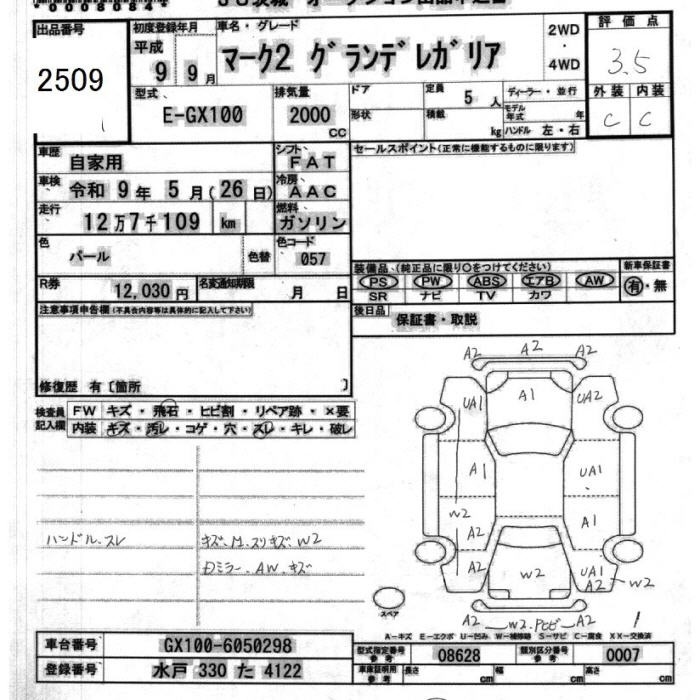 *0008084*
JU茨城 オークション出品申込書
出品番号 2509
初度登録年月 平成 9年 9月
車名・グレード マーク2 グランデレガリア
2WD・4WD
評価点 3.5
外装 C 内装 C
型式、 E-GX100
排気量 2000 CC
ドア 形状
定員 5人
積載 kg
ディーラー・並行
モデル年式 年
ハンドル 左・右
車歴 自家用
シフト、 FAT
セールスポイント(正常に機能するものに限ります)
車検、 令和 9年 5月(26日)
冷房、 AAC
走行 12万7千109 km
燃料、 ガソリン
色 パール 色替
色コード 057
R券 12,030円
名変通知期限 月 日
装備品、(純正品に限り○をつけてください)
PS PW ABS エアB AW
SR ナビ TV カワ
新車保証書 有・無
後日品 保証書・取説
注意事項申告欄(不具合内容等は具体的に記入して下さい)
修復歴 有〔箇所 〕
検査員記入欄
FW キズ・飛石・ヒビ割・リペア跡・×要
内装 キズ・汚レ・コゲ・穴・スレ・キレ・破レ
ハンドル.スレ
キズ.M.スリキズ.W2
Dミラー.AW.キズ
A2 A2 A2
UA1 A1 UA2
A1 UA1
W2
A2 A1
A2 W2 UA1 A2 W2
A2 W2.P A2
スペア
A-キズ E-エクボ U-凹み W-補修跡 S-サビ C-腐食 XX-交換済
車台番号 GX100-6050298
登録番号 水戸 330 た 4122
型式指定番号 参考 08628
類別区分番号 参考 0007
車庫証明用 参考 長さ cm 幅 cm 高さ cm